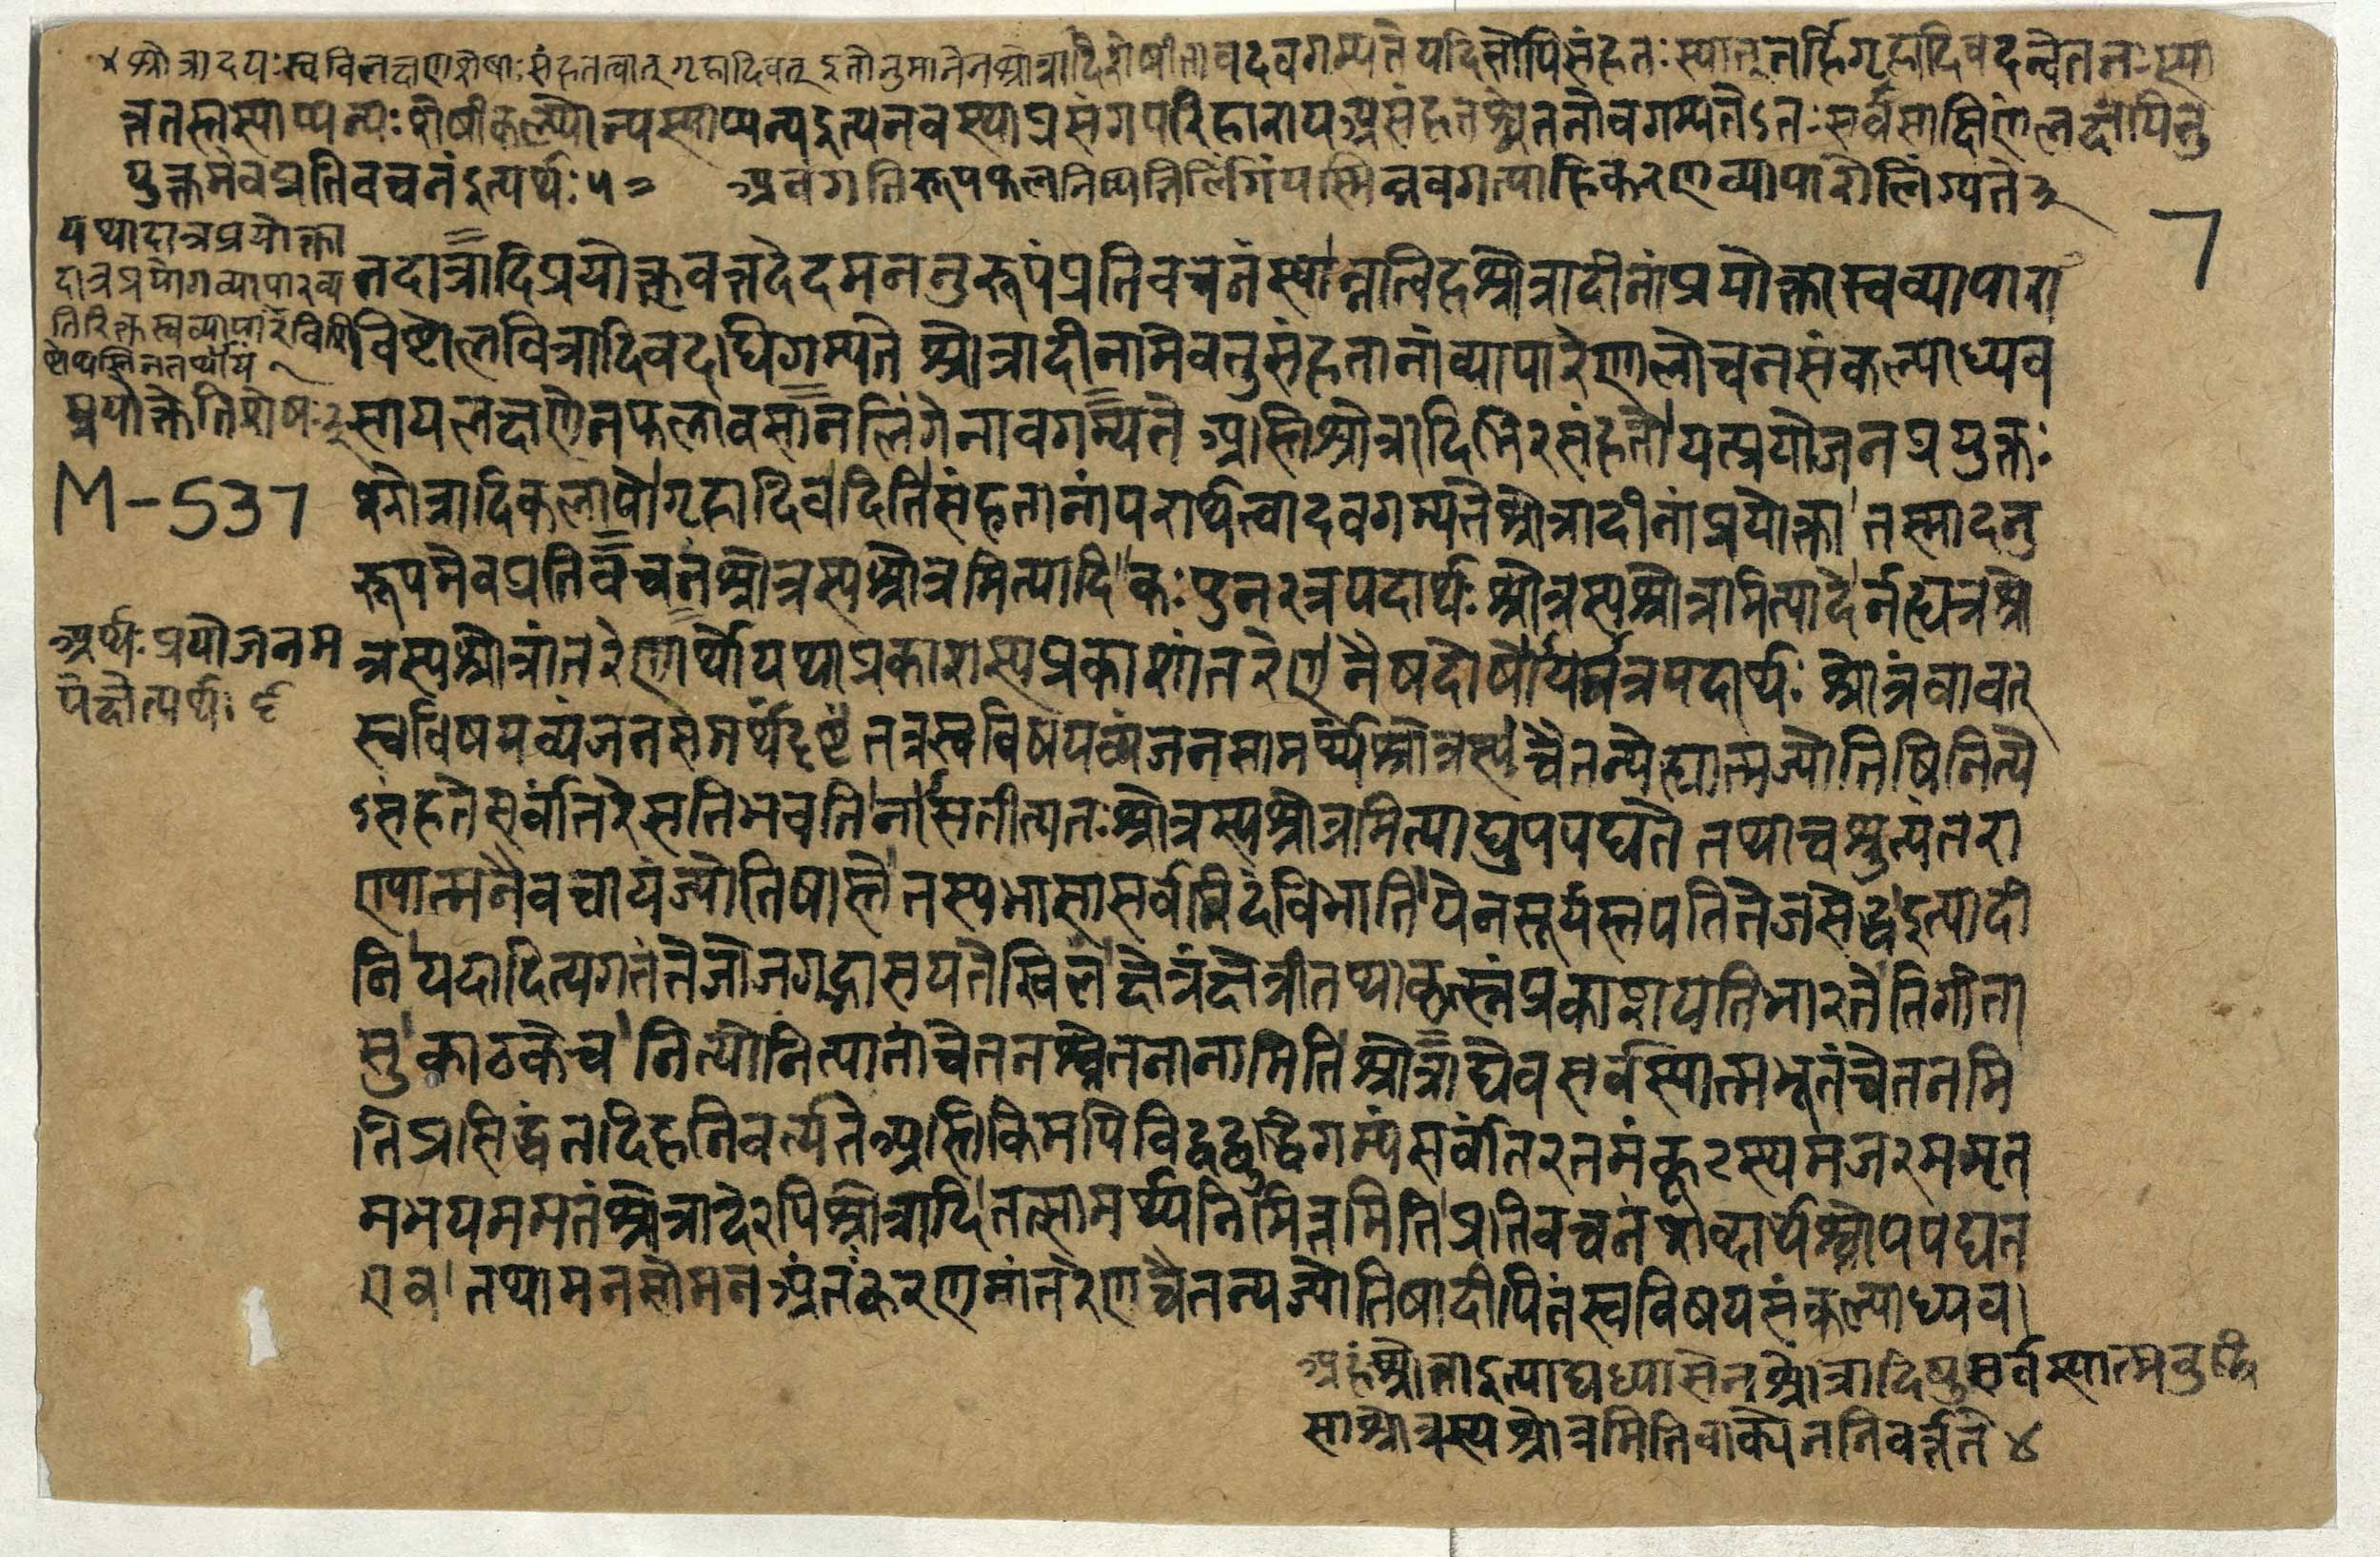 ४ श्रोत्रादयः स्वविलक्षणशेषाः संहतत्वात् गृहादिवत् इतोनुमानेनश्रोत्रादिशेषीतावदवगम्यते यदिसोपिसंहतः स्यात् तर्हिगृहादिवदचेतनः स्या
त्ततस्तस्याप्यन्यः शेषीकल्प्योन्यस्याप्यन्यइत्यनवस्थाप्रसंगपरिहारायअसंहतश्चेतनोवगम्यतेऽतः सर्वसाक्षिणंलक्षयितु
युक्तमेवप्रतिवचनंइत्यर्थः ५ = अवगतिरूपफलनिष्पत्तिर्लिंगंयस्मिन्नवगत्याहिकरणव्यापारोलिंग्यते २
7
यथादात्रप्रयोक्ता
दात्रप्रयोगव्यापारव्य
तिरिक्तस्वव्यापारेविशि
ष्टोथस्तिनतथायं
प्रयोक्तेतिशेषः २
M-537
तदात्रादिप्रयोक्तृवत्तदेदमननुरूपंप्रतिवचनंस्यान्नत्विहश्रोत्रादीनांप्रयोक्तास्वव्यापारा
विष्टोलवित्रादिवदधिगम्यते श्रोत्रादीनामेवतुसंहतानांव्यापारेणालोचनसंकल्पाध्यव
सायलक्षणेनफलावसानलिंगेनावगम्यते अस्तिश्रोत्रादिभिरसंहतोयत्प्रयोजनप्रयुक्तः
श्रोत्रादिकलापोगृहादिवदितिसंहतानांपरार्थत्वादवगम्यतेश्रोत्रादीनांप्रयोक्ता तस्मादनु
रूपमेवप्रतिवचनंश्रोत्रस्यश्रोत्रमित्यादि कः पुनरत्रपदार्थः श्रोत्रस्यश्रोत्रमित्यादेर्नह्यत्रश्रो
अर्थः प्रयोजनम
पेक्षेत्यर्थः ६
त्रस्यश्रोत्रांतरेणार्थोयथाप्रकाशस्यप्रकाशांतरेण नैषदोषोयमत्रपदार्थः श्रोत्रंतावत्
स्वविषयव्यंजनसमर्थंदृष्टं तत्तुस्वविषयव्यंजनसामर्थ्यंश्रोत्रस्य चैतन्येह्यात्मज्योतिषिनित्ये
ऽसंहतेसर्वांतरेसतिभवति नासतीत्यतः श्रोत्रस्यश्रोत्रमित्याद्युपपद्यते तथाचश्रुत्यंतरा
ण्यात्मनैवचायंज्योतिषास्ते तस्यभासासर्वमिदंविभाति येनसूर्यस्तपतितेजसेद्धइत्यादी
नि यदादित्यगतंतेजोजगद्भासयतेखिलं क्षेत्रंक्षेत्रीतथाकृत्स्नंप्रकाशयतिभारतेतिगीता
सु काठकेच नित्योनित्यानांचेतनश्चेतनानामिति श्रोत्राद्येवसर्वस्यात्मभूतंचेतनमि
तिप्रसिद्धंतदिहनिवर्त्यते अस्तिकिमपिविद्वद्बुद्धिगम्यंसर्वांतरतमंकूटस्थमजरममृत
मभयममतंश्रोत्रादेरपिश्रोत्रादि तत्सामर्थ्यनिमित्तमितिप्रतिवचनंशब्दार्थश्चोपपद्यत
एव तथामनसोमनअंतःकरणमांतरेणचैतन्यज्योतिषादीपितंस्वविषयसंकल्पाध्यव
अहंश्रोताइत्याद्यध्यासेनश्रोत्रादिषुसर्वस्यात्मबुद्धि
साश्रोत्रस्यश्रोत्रमितिवाक्येननिवर्त्तते ४